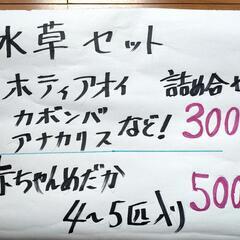 水草セット
ホティアオイ 詰め合せ
カボンバ
アナカリス など! 300
赤ちゃんめだか
4〜5匹入り 500